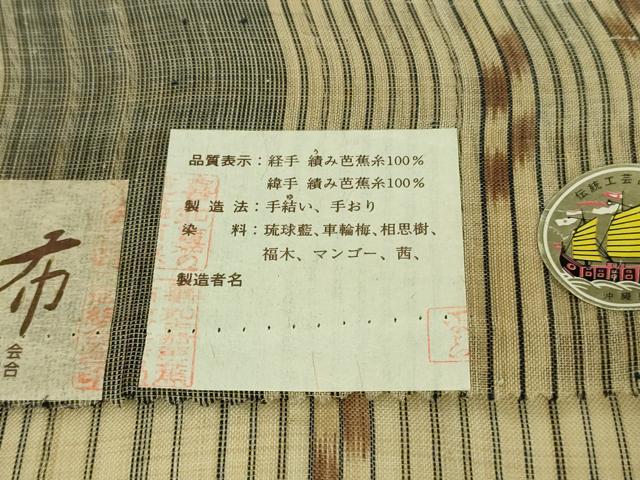 品質表示：経手 績み芭蕉糸100％
緯手 績み芭蕉糸100％
製造法：手結い、手おり
染料：琉球藍、車輪梅、相思樹、
福木、マンゴー、茜、
製造者名
布
会
合
伝統工芸
沖縄